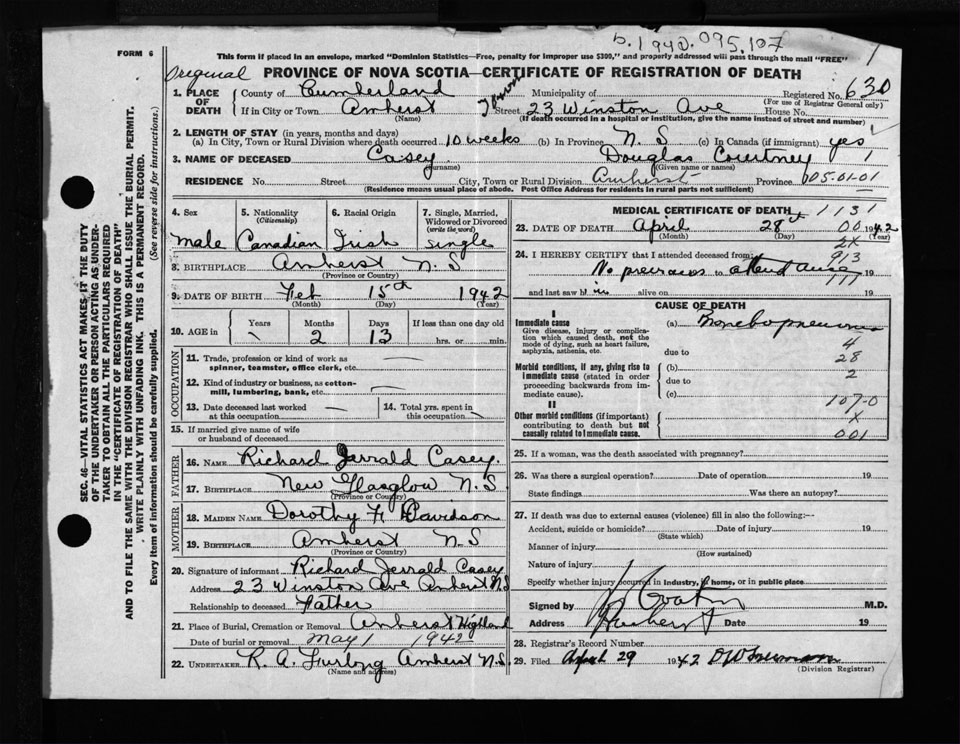 b. 1942.095.107
FORM 6
This form if placed in an envelope, marked "Dominion Statistics—Free, penalty for improper use $300," and properly addressed will pass through the mail "FREE"
Original PROVINCE OF NOVA SCOTIA—CERTIFICATE OF REGISTRATION OF DEATH
1. PLACE OF DEATH County of Cumberland Municipality of Registered No. 630
(For use of Registrar General only)
If in City or Town Amherst Town Street 23 Winston Ave House No.
(Name) (If death occurred in a hospital or institution, give the name instead of street and number)
2. LENGTH OF STAY (in years, months and days)
(a) In City, Town or Rural Division where death occurred 10 weeks (b) In Province N. S (c) In Canada (if immigrant) yes
3. NAME OF DECEASED Casey Douglas Courtney 1
(Surname) (Given name or names)
RESIDENCE No. Street City, Town or Rural Division Amherst Province 105-01-01
(Residence means usual place of abode. Post Office Address for residents in rural parts not sufficient)
4. Sex 5. Nationality (Citizenship) 6. Racial Origin 7. Single, Married, Widowed or Divorced (write the word)
Male Canadian Irish single
8. BIRTHPLACE Amherst N. S
(Province or Country)
9. DATE OF BIRTH Feb 15th 1942
(Month) (Day) (Year)
10. AGE in Years Months Days If less than one day old
2 13 hrs. or min.
OCCUPATION
11. Trade, profession or kind of work as spinner, teamster, office clerk, etc.
12. Kind of industry or business, as cotton-mill, lumbering, bank, etc.
13. Date deceased last worked at this occupation
14. Total yrs. spent in this occupation
15. If married give name of wife or husband of deceased
FATHER
16. NAME Richard Jerrald Casey.
17. BIRTHPLACE New Glasglow N. S
(Province or Country)
MOTHER
18. MAIDEN NAME Dorothy H Davidson
19. BIRTHPLACE Amherst N. S
(Province or Country)
20. Signature of informant Richard Jerrald Casey
Address 23 Winston Ave Amherst N.S
Relationship to deceased Father
21. Place of Burial, Cremation or Removal Amherst Highland
Date of burial or removal May 1 1942
22. UNDERTAKER R. A. Furlong Amherst N.S.
(Name and address)
MEDICAL CERTIFICATE OF DEATH 1131
23. DATE OF DEATH April 28th 1942
(Month) (Day) (Year)
24. I HEREBY CERTIFY that I attended deceased from: 913
No previous attendance 19
and last saw h im alive on 19
CAUSE OF DEATH
I
Immediate cause
Give disease, injury or complication which caused death, not the mode of dying, such as heart failure, asphyxia, asthenia, etc.
(a) Bronchopneumonia
4
due to 28
Morbid conditions, if any, giving rise to immediate cause (stated in order proceeding backwards from immediate cause).
(b) 2
due to
(c) 107-0
II
Other morbid conditions (if important) contributing to death but not causally related to Immediate cause.
X
001
25. If a woman, was the death associated with pregnancy?
26. Was there a surgical operation? Date of operation 19
State findings Was there an autopsy?
27. If death was due to external causes (violence) fill in also the following:—
Accident, suicide or homicide? Date of injury 19
(State which)
Manner of injury
(How sustained)
Nature of injury
Specify whether injury occurred in industry, home, or in public place
Signed by M.D.
Address Amherst Date 19
28. Registrar's Record Number
29. Filed April 29 1942
(Division Registrar)
SEC. 46—VITAL STATISTICS ACT MAKES IT THE DUTY
OF THE UNDERTAKER OR PERSON ACTING AS UNDER-
TAKER TO OBTAIN ALL THE PARTICULARS REQUIRED
IN THE "CERTIFICATE OF REGISTRATION OF DEATH"
AND TO FILE THE SAME WITH THE DIVISION REGISTRAR WHO SHALL ISSUE THE BURIAL PERMIT.
WRITE PLAINLY WITH UNFADING INK. THIS IS A PERMANENT RECORD.
Every item of information should be carefully supplied. (See reverse side for instructions.)